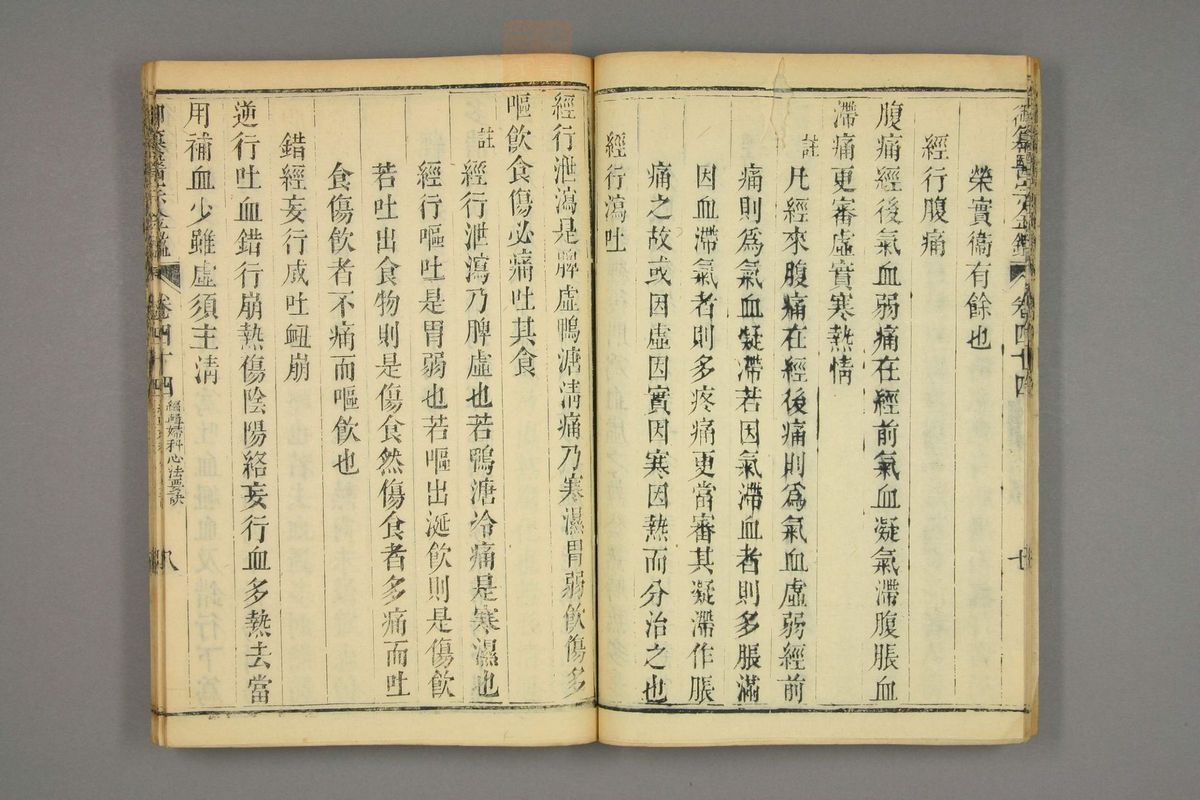 御纂醫宗金鑑 卷四十四 七
榮實衞有餘也
經行腹痛
腹痛經後氣血弱痛在經前氣血凝氣滯腹脹血
滯痛更審虛實寒熱情
註 凡經來腹痛在經後痛則爲氣血虛弱經前
痛則爲氣血凝滯若因氣滯血者則多脹滿
因血滯氣者則多疼痛更當審其凝滯作脹
痛之故或因虛因實因寒因熱而分治之也
經行瀉吐
經行泄瀉是脾虛鴨溏淸痛乃寒濕胃弱飮傷多
嘔飮食傷必痛吐其食
註 經行泄瀉乃脾虛也若鴨溏冷痛是寒濕也
經行嘔吐是胃弱也若嘔出涎飮則是傷飮
若吐出食物則是傷食然傷食者多痛而吐
食傷飮者不痛而嘔飮也
錯經妄行成吐衄崩
逆行吐血錯行崩熱傷陰陽絡妄行血多熱去當
用補血少雖虛須主淸
御纂醫宗金鑑 卷四十四 編輯婦科心法要訣 八